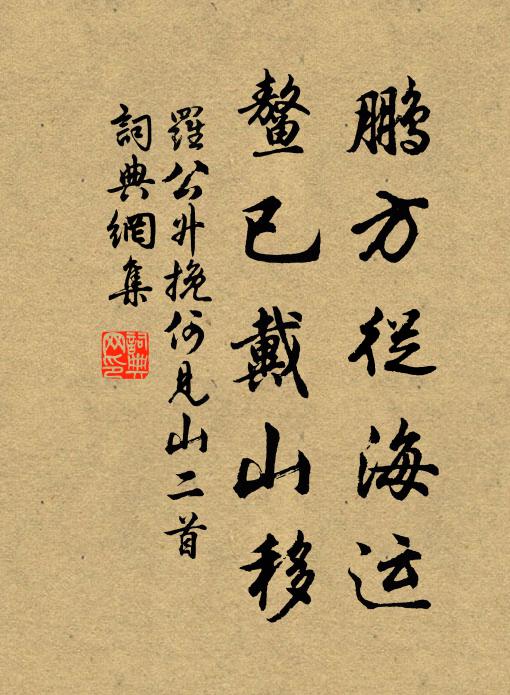 鹏方從海运
鳌已戴山移
羅公升挽何見山二首
詞典網集
詞典網印